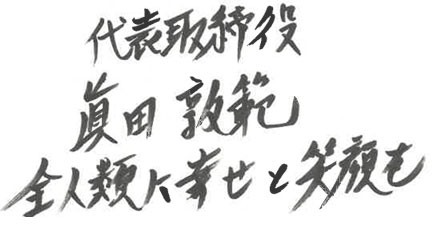 代表取締役
眞田 敦範
全人類に幸せと笑顔を